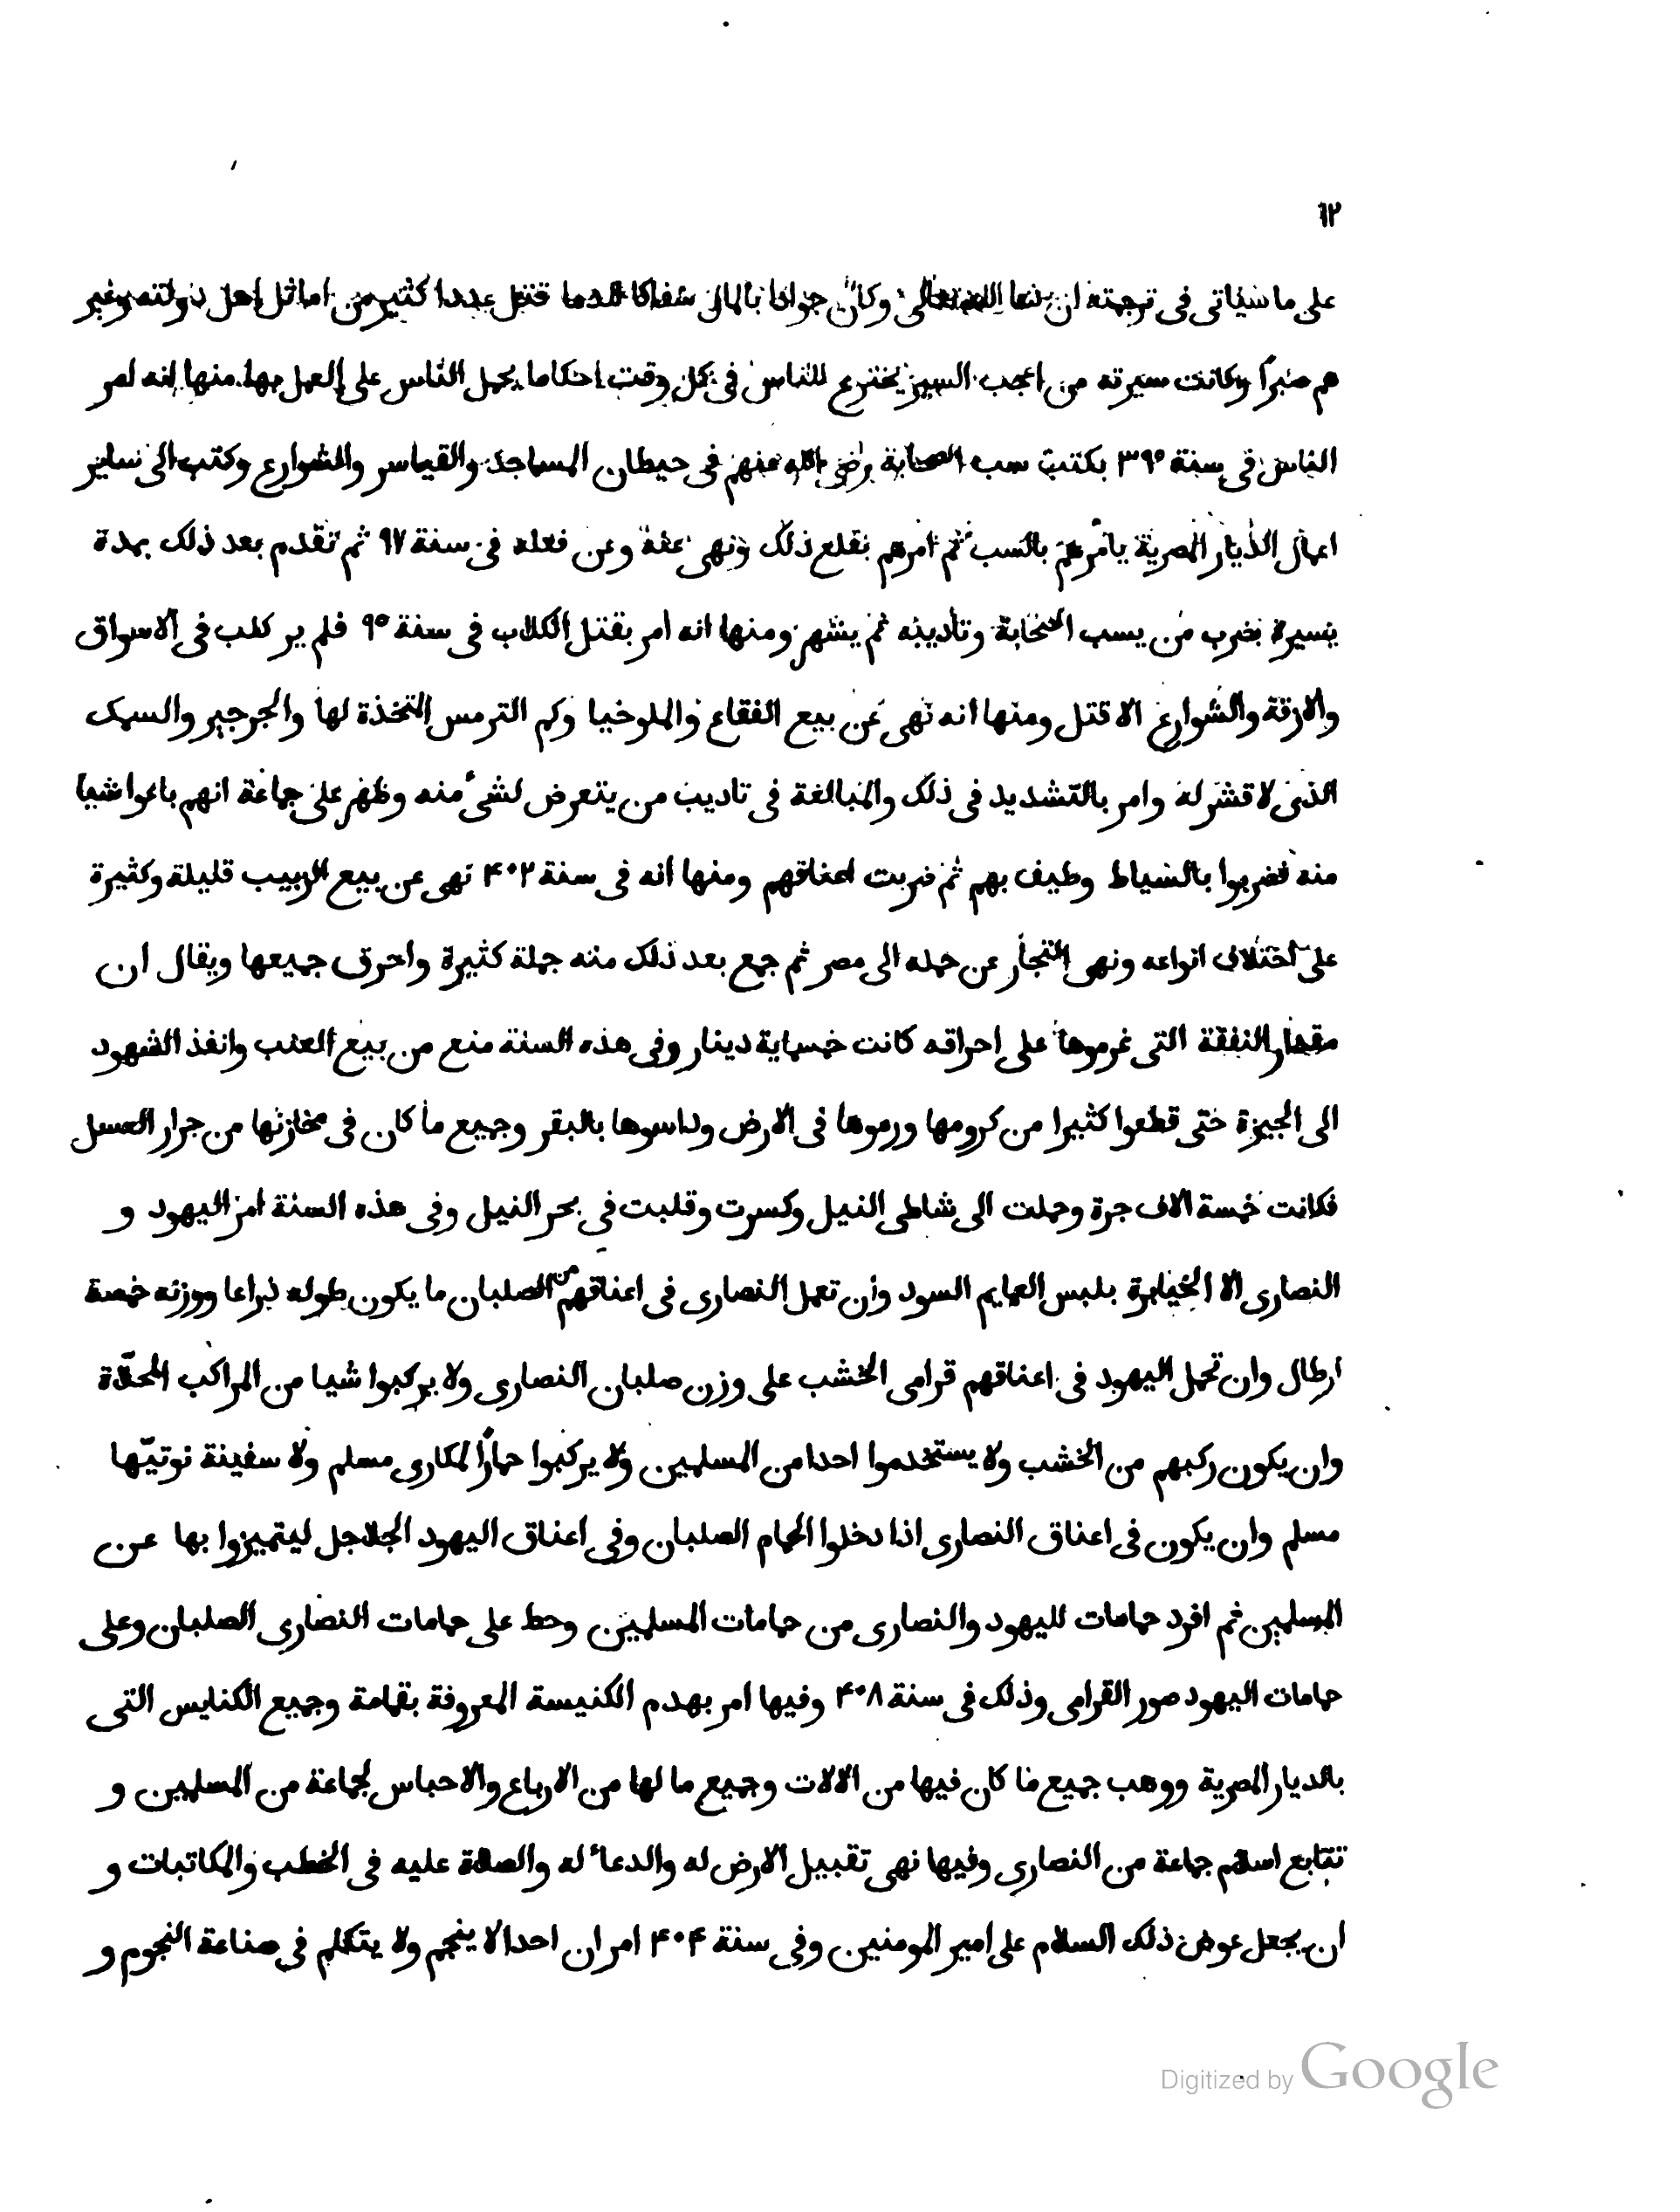 ٦٢
على ما سياتى فى ترجمته ان شا الله تعالى وكان جوادا بالمال سفاكا للدما قتل عددا كثير من اماثل اهل دولته وغير
هم صبرًا وكانت سيرته من اعجب السير يخترع للناس فى كل وقت احكاما يحمل الناس على العمل بها منها انه امر
الناس فى سنة ٣٩٥ بكتب سب الصحابة رضى الله عنهم فى حيطان المساجد والقياسر والشوارع وكتب الى ساير
اعمال الديار المصرية يأمرهم بالسب ثم امرهم بقلع ذلك ونهى عنه وعن فعله فى سنة ٩٧ ثم تقدم بعد ذلك بمدة
يسيرة بضرب من يسب الصحابة وتأديبه ثم يشهر ومنها انه امر بقتل الكلاب فى سنة ٩٥ فلم ير كلب فى الاسواق
والازقة والشوارع الا قتل ومنها انه نهى عن بيع الفقاع والملوخيا وكم الترمس المتخذة لها والجرجير والسمك
الذى لا قشر له وامر بالتشديد فى ذلك والمبالغة فى تاديب من يتعرض لشىء منه وظهر على جماعة انهم باعوا شيا
منه فضربوا بالسياط وطيف بهم ثم ضربت اعناقهم ومنها انه فى سنة ۴٠٢ نهى عن بيع الزبيب قليلة وكثيرة
على اختلاف انواعه ونهى التجار عن حمله الى مصر ثم جمع بعد ذلك منه جملة كثيرة واحرق جميعها ويقال ان
مقدار النفقة التى غرموها على احراقه كانت خمسماية دينار وفى هذه السنة منع من بيع العنب وانفذ الشهود
الى الجيزة حتى قطعوا كثيرا من كرومها ورموها فى الارض وداسوها بالبقر وجميع ما كان فى مخازنها من جرار العسل
فكانت خمسة الاف جرة وحملت الى شاطى النيل وكسرت وقلبت فى بحر النيل وفى هذه السنة امر اليهود و
النصارى الا الخيابرة بلبس العمايم السود وان تعمل النصارى فى اعناقهم من الصلبان ما يكون طوله ذراعا ووزنه خمسة
ارطال وان تحمل اليهود فى اعناقهم قرامى الخشب على وزن صلبان النصارى ولا يركبوا شيا من المراكب المحلّاة
وان يكون ركبهم من الخشب ولا يستخدموا احدا من المسلمين ولا يركبوا حمارًا لمكارى مسلم ولا سفينة نوتيّها
مسلم وان يكون فى اعناق النصارى اذا دخلوا الحمام الصلبان وفى اعناق اليهود الجلاجل ليتميزوا بها عن
المسلمين ثم افرد حمامات لليهود والنصارى من حمامات المسلمين وحط على حمامات النصارى الصلبان وعلى
حمامات اليهود صور القرامى وذلك فى سنة ۴٠٨ وفيها امر بهدم الكنيسة المعروفة بقمامة وجميع الكنايس التى
بالديار المصرية ووهب جميع ما كان فيها من الالات وجميع ما لها من الارباع والاحباس لجماعة من المسلمين و
تتابع اسلام جماعة من النصارى وفيها نهى تقبيل الارض له والدعاء له والصلاة عليه فى الخطب والمكاتبات و
ان يجعل عوض ذلك السلام على امير المومنين وفى سنة ۴٠۴ امر ان احدا لا ينجم ولا يتكلم فى صناعة النجوم و
Digitized by Google